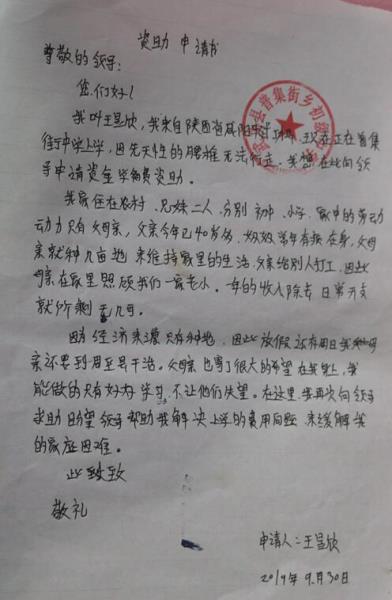 资助申请书
尊敬的领导:
您们好!
我叫王昱欣,我来自陕西省咸阳市武功县,现在正在普集
街中学上学,因先天性的腰椎无法行走,我想在此向领
导申请资金学费资助。
我家住在农村,兄妹二人,分别初中、小学,家中的劳动
动力只有父母亲,父亲今年已40多岁,奶奶常年有病在身,父母
亲就种几亩地来维持家里的生活,父亲给别人打工,因此
母亲在家里照顾我们一家老小。一年的收入除去日常开支
就所剩无几可。
因经济来源只有种地,因此放假还有周日我和母
亲还要到周至县干活。父母亲也寄了很大的希望在我身上,我
能做的只有好好学习,不让他们失望。在这里,我再次向领导
求助盼望领导帮助我解决上学的费用问题,来缓解我
的家庭困难。
此致
敬礼
申请人:王昱欣
2019年9月30日
县普集街乡初级